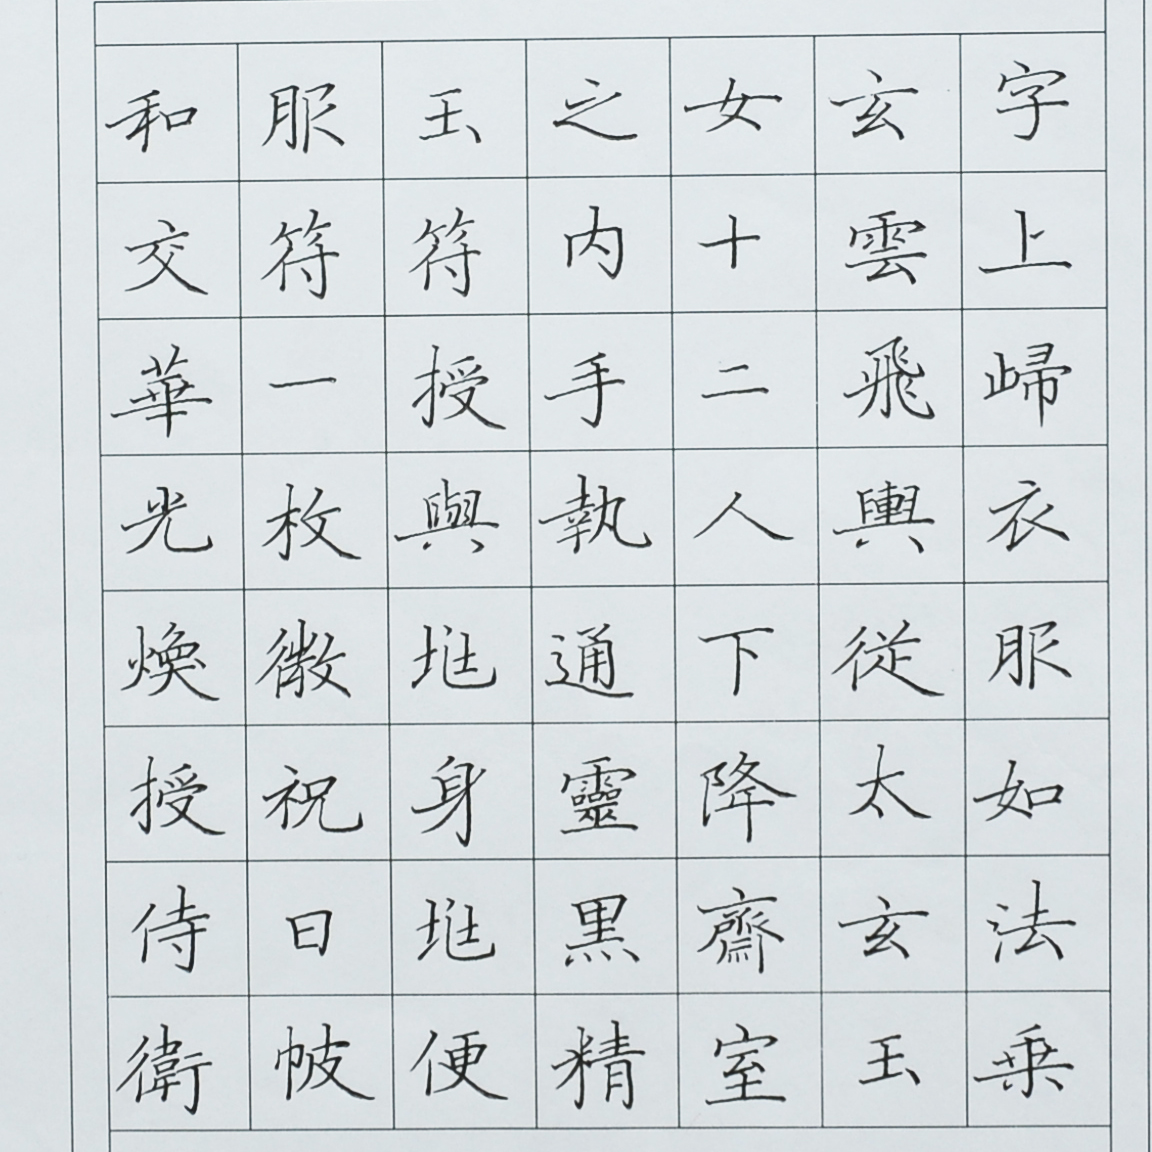 字上歸衣服如法乗
玄雲飛輿從太玄玉
女十二人下降齋室
之内手執通靈黒精
玉符授與兆身兆便
服符一枚微祝曰帔
和交華光煥授侍衛